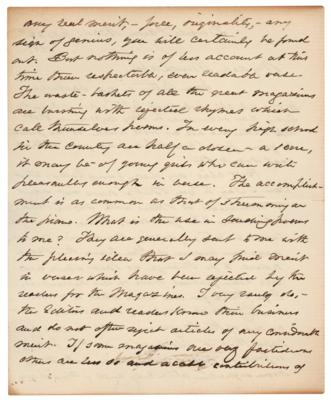 any real merit, - force, originality, - any
sign of genius, you will certainly be found
out. But nothing is of less account at this
time than respectable, even readable verse.
The waste-baskets of all the great magazines
are bursting with rejected rhymes which
call themselves poems. In every high school
in the country are half a dozen - a score,
it may be - of young girls who can write
pleasantly enough in verse. The accomplish-
ment is as common as that of thrumming on
the piano. What is the use in sending poems
to me? They are generally sent to me with
the pleasing idea that I may find merit
in verses which have been rejected by the
readers for the Magazines. I very rarely do, -
the Editors and readers know their business
and do not often reject articles of any considerable
merit. If some magazines are fastidious
others are less so and accept contributions of